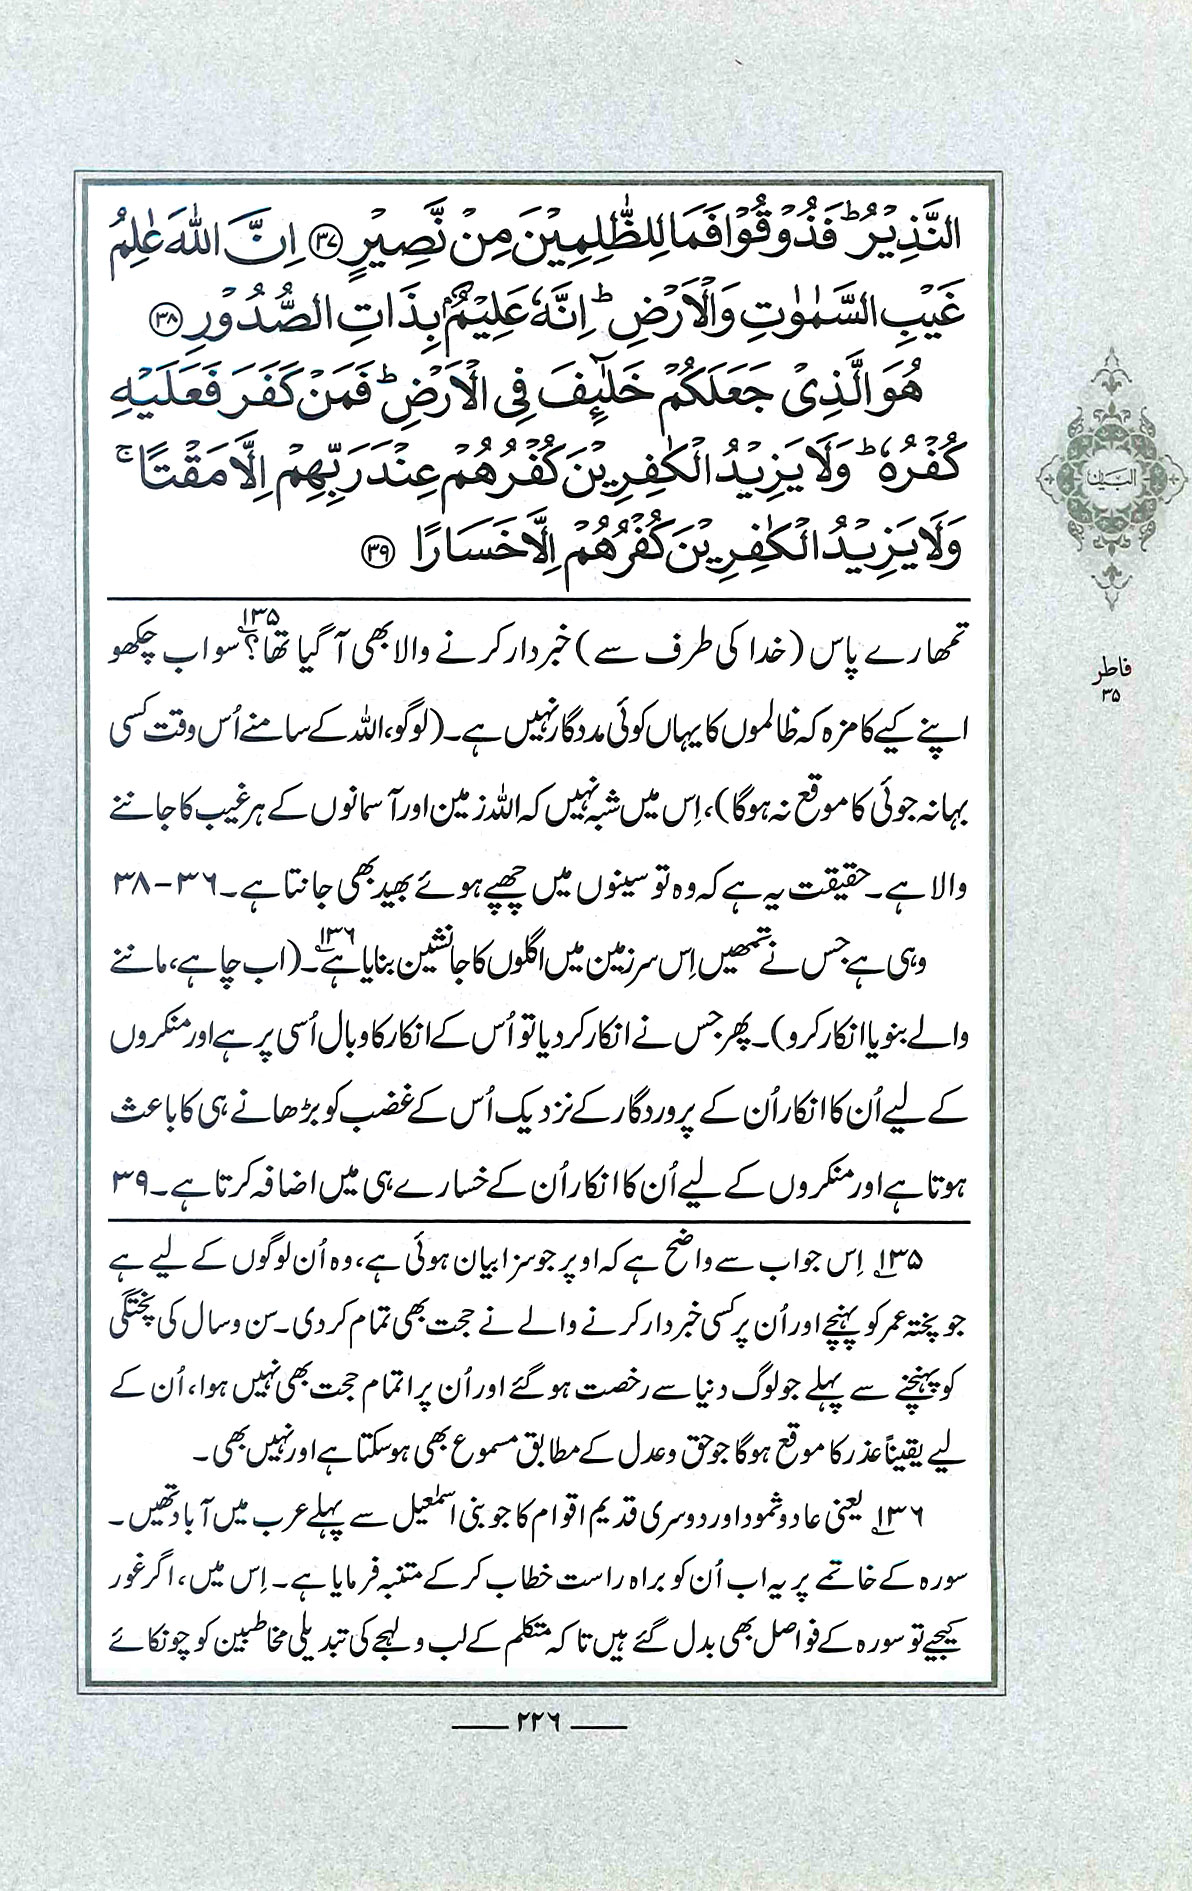 النَّذِيْرُ ؕ فَذُوْقُوْا فَمَا لِلظّٰلِمِيْنَ مِنْ نَّصِيْرٍ ﴿۳۷﴾ اِنَّ اللّٰهَ عٰلِمُ
غَيْبِ السَّمٰوٰتِ وَالْاَرْضِ ؕ اِنَّهٗ عَلِيْمٌۢ بِذَاتِ الصُّدُوْرِ ﴿۳۸﴾
هُوَ الَّذِيْ جَعَلَكُمْ خَلٰٓئِفَ فِي الْاَرْضِ ؕ فَمَنْ كَفَرَ فَعَلَيْهِ
كُفْرُهٗ ؕ وَلَا يَزِيْدُ الْكٰفِرِيْنَ كُفْرُهُمْ عِنْدَ رَبِّهِمْ اِلَّا مَقْتًا ۚ
وَلَا يَزِيْدُ الْكٰفِرِيْنَ كُفْرُهُمْ اِلَّا خَسَارًا ﴿۳۹﴾
تمھارے پاس (خدا کی طرف سے) خبردار کرنے والا بھی آ گیا تھا؟۱۳۵ سو اب چکھو
اپنے کیے کا مزہ کہ ظالموں کا یہاں کوئی مددگار نہیں ہے۔ (لوگو، اللہ کے سامنے اُس وقت کسی
بہانہ جوئی کا موقع نہ ہوگا)، اِس میں شبہ نہیں کہ اللہ زمین اور آسمانوں کے ہر غیب کا جاننے
والا ہے۔ حقیقت یہ ہے کہ وہ تو سینوں میں چھپے ہوئے بھید بھی جانتا ہے۔ ۳۶-۳۸
وہی ہے جس نے تمھیں اِس سرزمین میں اگلوں کا جانشین بنایا ہے۱۳۶۔ (اب چاہے، ماننے
والے بنو یا انکار کرو)۔ پھر جس نے انکار کر دیا تو اُس کے انکار کا وبال اُسی پر ہے اور منکروں
کے لیے اُن کا انکار اُن کے پروردگار کے نزدیک اُس کے غضب کو بڑھانے ہی کا باعث
ہوتا ہے اور منکروں کے لیے اُن کا انکار اُن کے خسارے ہی میں اضافہ کرتا ہے۔ ۳۹
۱۳۵؎ اِس جواب سے واضح ہے کہ اوپر جو سزا بیان ہوئی ہے، وہ اُن لوگوں کے لیے ہے
جو پختہ عمر کو پہنچے اور اُن پر کسی خبردار کرنے والے نے حجت بھی تمام کر دی۔ سن و سال کی پختگی
کو پہنچنے سے پہلے جو لوگ دنیا سے رخصت ہو گئے اور اُن پر اتمام حجت بھی نہیں ہوا، اُن کے
لیے یقیناً عذر کا موقع ہوگا جو حق و عدل کے مطابق مسموع بھی ہو سکتا ہے اور نہیں بھی۔
۱۳۶؎ یعنی عاد و ثمود اور دوسری قدیم اقوام کا جو بنی اسمٰعیل سے پہلے عرب میں آباد تھیں۔
سورہ کے خاتمے پر یہ اب اُن کو براہ راست خطاب کر کے متنبہ فرمایا ہے۔ اِس میں، اگر غور
کیجیے تو سورہ کے فواصل بھی بدل گئے ہیں تاکہ متکلم کے لب و لہجے کی تبدیلی مخاطبین کو چونکائے
۲۲۶
البیان
فاطر
۳۵